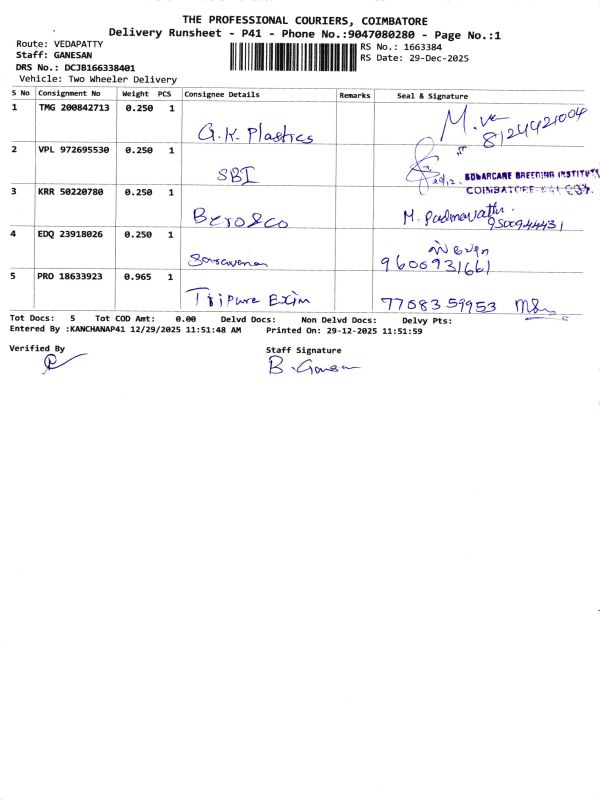 THE PROFESSIONAL COURIERS, COIMBATORE
Delivery Runsheet - P41 - Phone No.:9047080280 - Page No.:1
Route: VEDAPATTY
RS No.: 1663384
Staff: GANESAN
RS Date: 29-Dec-2025
DRS No.: DCJB166338401
Vehicle: Two Wheeler Delivery
S No Consignment No Weight PCS Consignee Details Remarks Seal & Signature
1 TMG 200842713 0.250 1 G.K. Plastics
8124421004
2 VPL 972695530 0.250 1 SBI
SUGARCANE BREEDING INSTITUTE
COIMBATORE-641 007.
3 KRR 50220780 0.250 1 Bero&co M. Padmavathi
9500944431
4 EDQ 23918026 0.250 1 Saravanan
9600931661
5 PRO 18633923 0.965 1 Tripura Exim 77083 59953
Tot Docs: 5 Tot COD Amt: 0.00 Delvd Docs: Non Delvd Docs: Delvy Pts:
Entered By :KANCHANAP41 12/29/2025 11:51:48 AM Printed On: 29-12-2025 11:51:59
Verified By Staff Signature
B. Ganesan